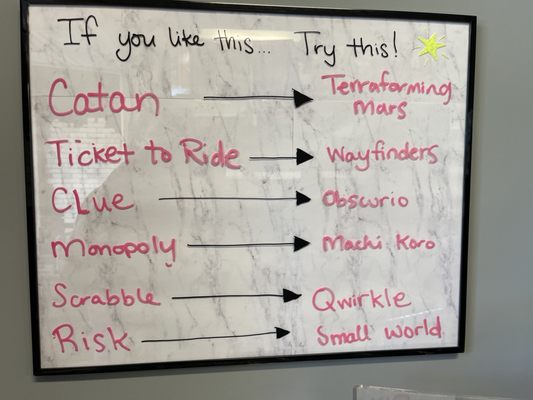 If you like this... Try this!
Catan → Terraforming Mars
Ticket to Ride → Wayfinders
CLue → Obscurio
Monopoly → Machi Koro
Scrabble → Qwirkle
Risk → Small World